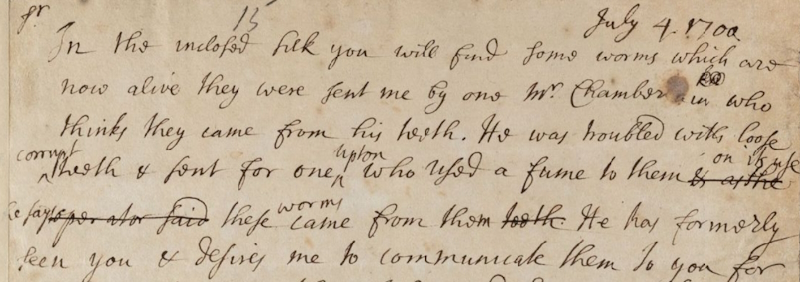 Sr
13
July 4. 1700
In the inclosed silk you will find some worms which are
now alive they were sent me by one Mr. Chamberlain who
thinks they came from his teeth. He was troubled with loose
corrupt upton on its use
teeth & sent for one who used a fume to them & as the
he says worms
operator said these came from them teeth. He has formerly
seen you & desires me to communicate them to you for